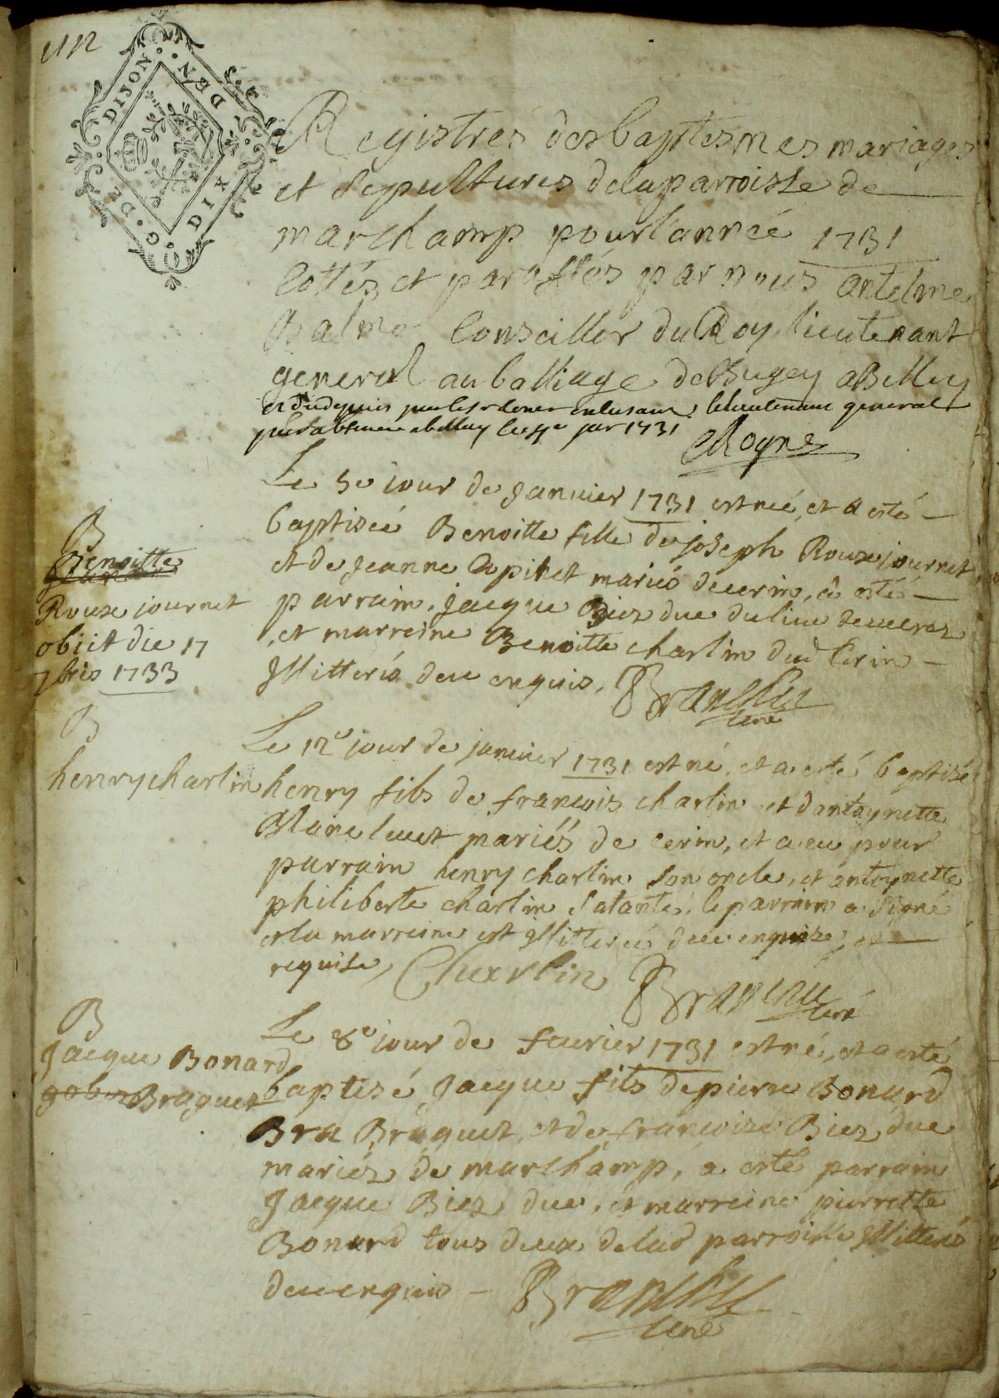 G. DE. DIJON. DEN. DIX
Registres des baptesmes mariages
et sepultures de la parroisse de
marchamp pour l'année 1731
Cottés et paraffés par nous antelme
Balme Conseiller du Roy lieutenant
general au balliage de Bugey a Belley
le lieutenant general
absence a belley le jer 1731
Le 5e jour de Janvier 1731 est née, et a esté
baptisée Benoitte fille de joseph Rouxe journet
et de jeanne mariés de cerin, a esté
parrain, jacque Biez due du lieu
et marreine Benoitte charlin dud Cerin
illitterés de ce enquis,
curé
B
Benoitte
Rouxe journet
obiit die 17
7bris 1733
Le 12e jour de janvier 1731 est né, et a esté baptisé
henry fils de francois charlin et d'antoynette
mariés de cerin, et a eu pour
parrain henry charlin son oncle, et antoynette
philiberte charlin sa tante, le parrain a signé
et la marreine est illiterée de ce enquize, et
requise, Charlin
curé
B
henry charlin
Le 8e jour de fevrier 1731 est né, et a esté
baptisé jacque fils de pierre Bonard
Bra Braguet, et de francoise Biez due
mariés de marchamp, a esté parrain
jacque Biez due, et marreine pierrette
Bonard tous deux de lad parroisse illitterés
de ce enquis
curé
B
jacque Bonard
Braguet